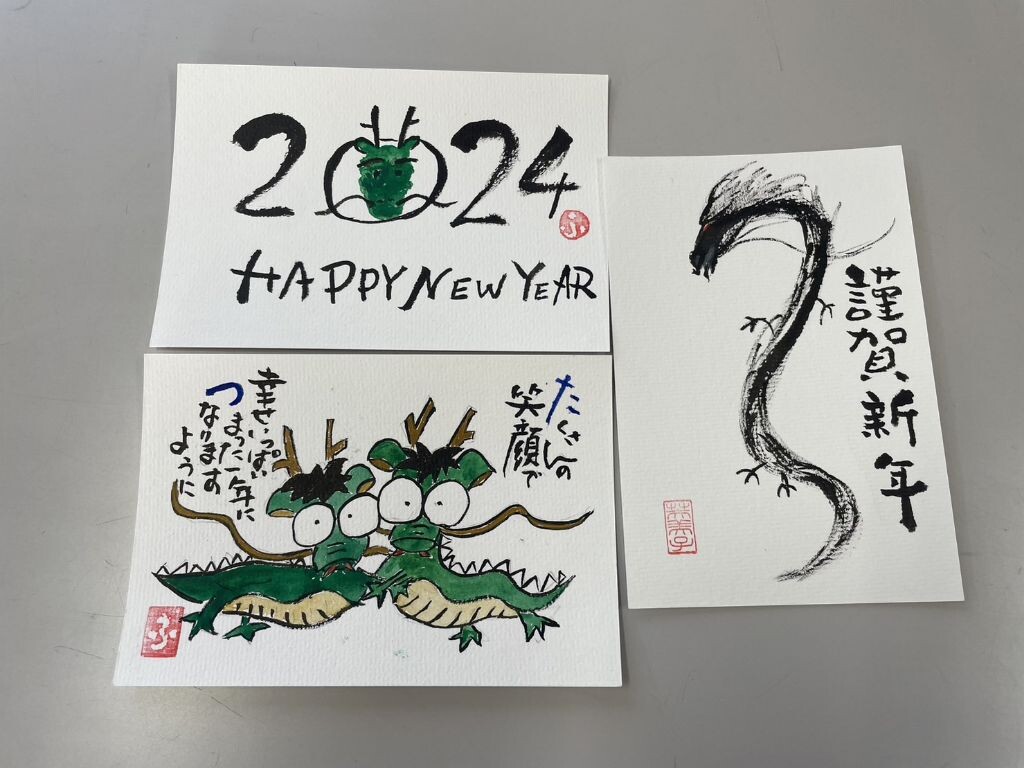 2024
ふ
HAPPY NEW YEAR
たくさんの
笑顔で
幸せいっぱい
つまった一年に
なります
ように
ふ
謹賀新年